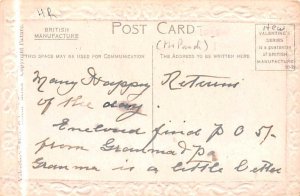 4R
POST CARD
BRITISH
MANUFACTURE
New
VALENTINE'S
SERIES
is a guarantee
of BRITISH
MANUFACTURE
THIS SPACE MAY BE USED FOR COMMUNICATION
THE ADDRESS TO BE WRITTEN HERE
Many Happy Returns
of the day.
Enclosed find P O 5/-
from Granma & Pa
Granma is a little better